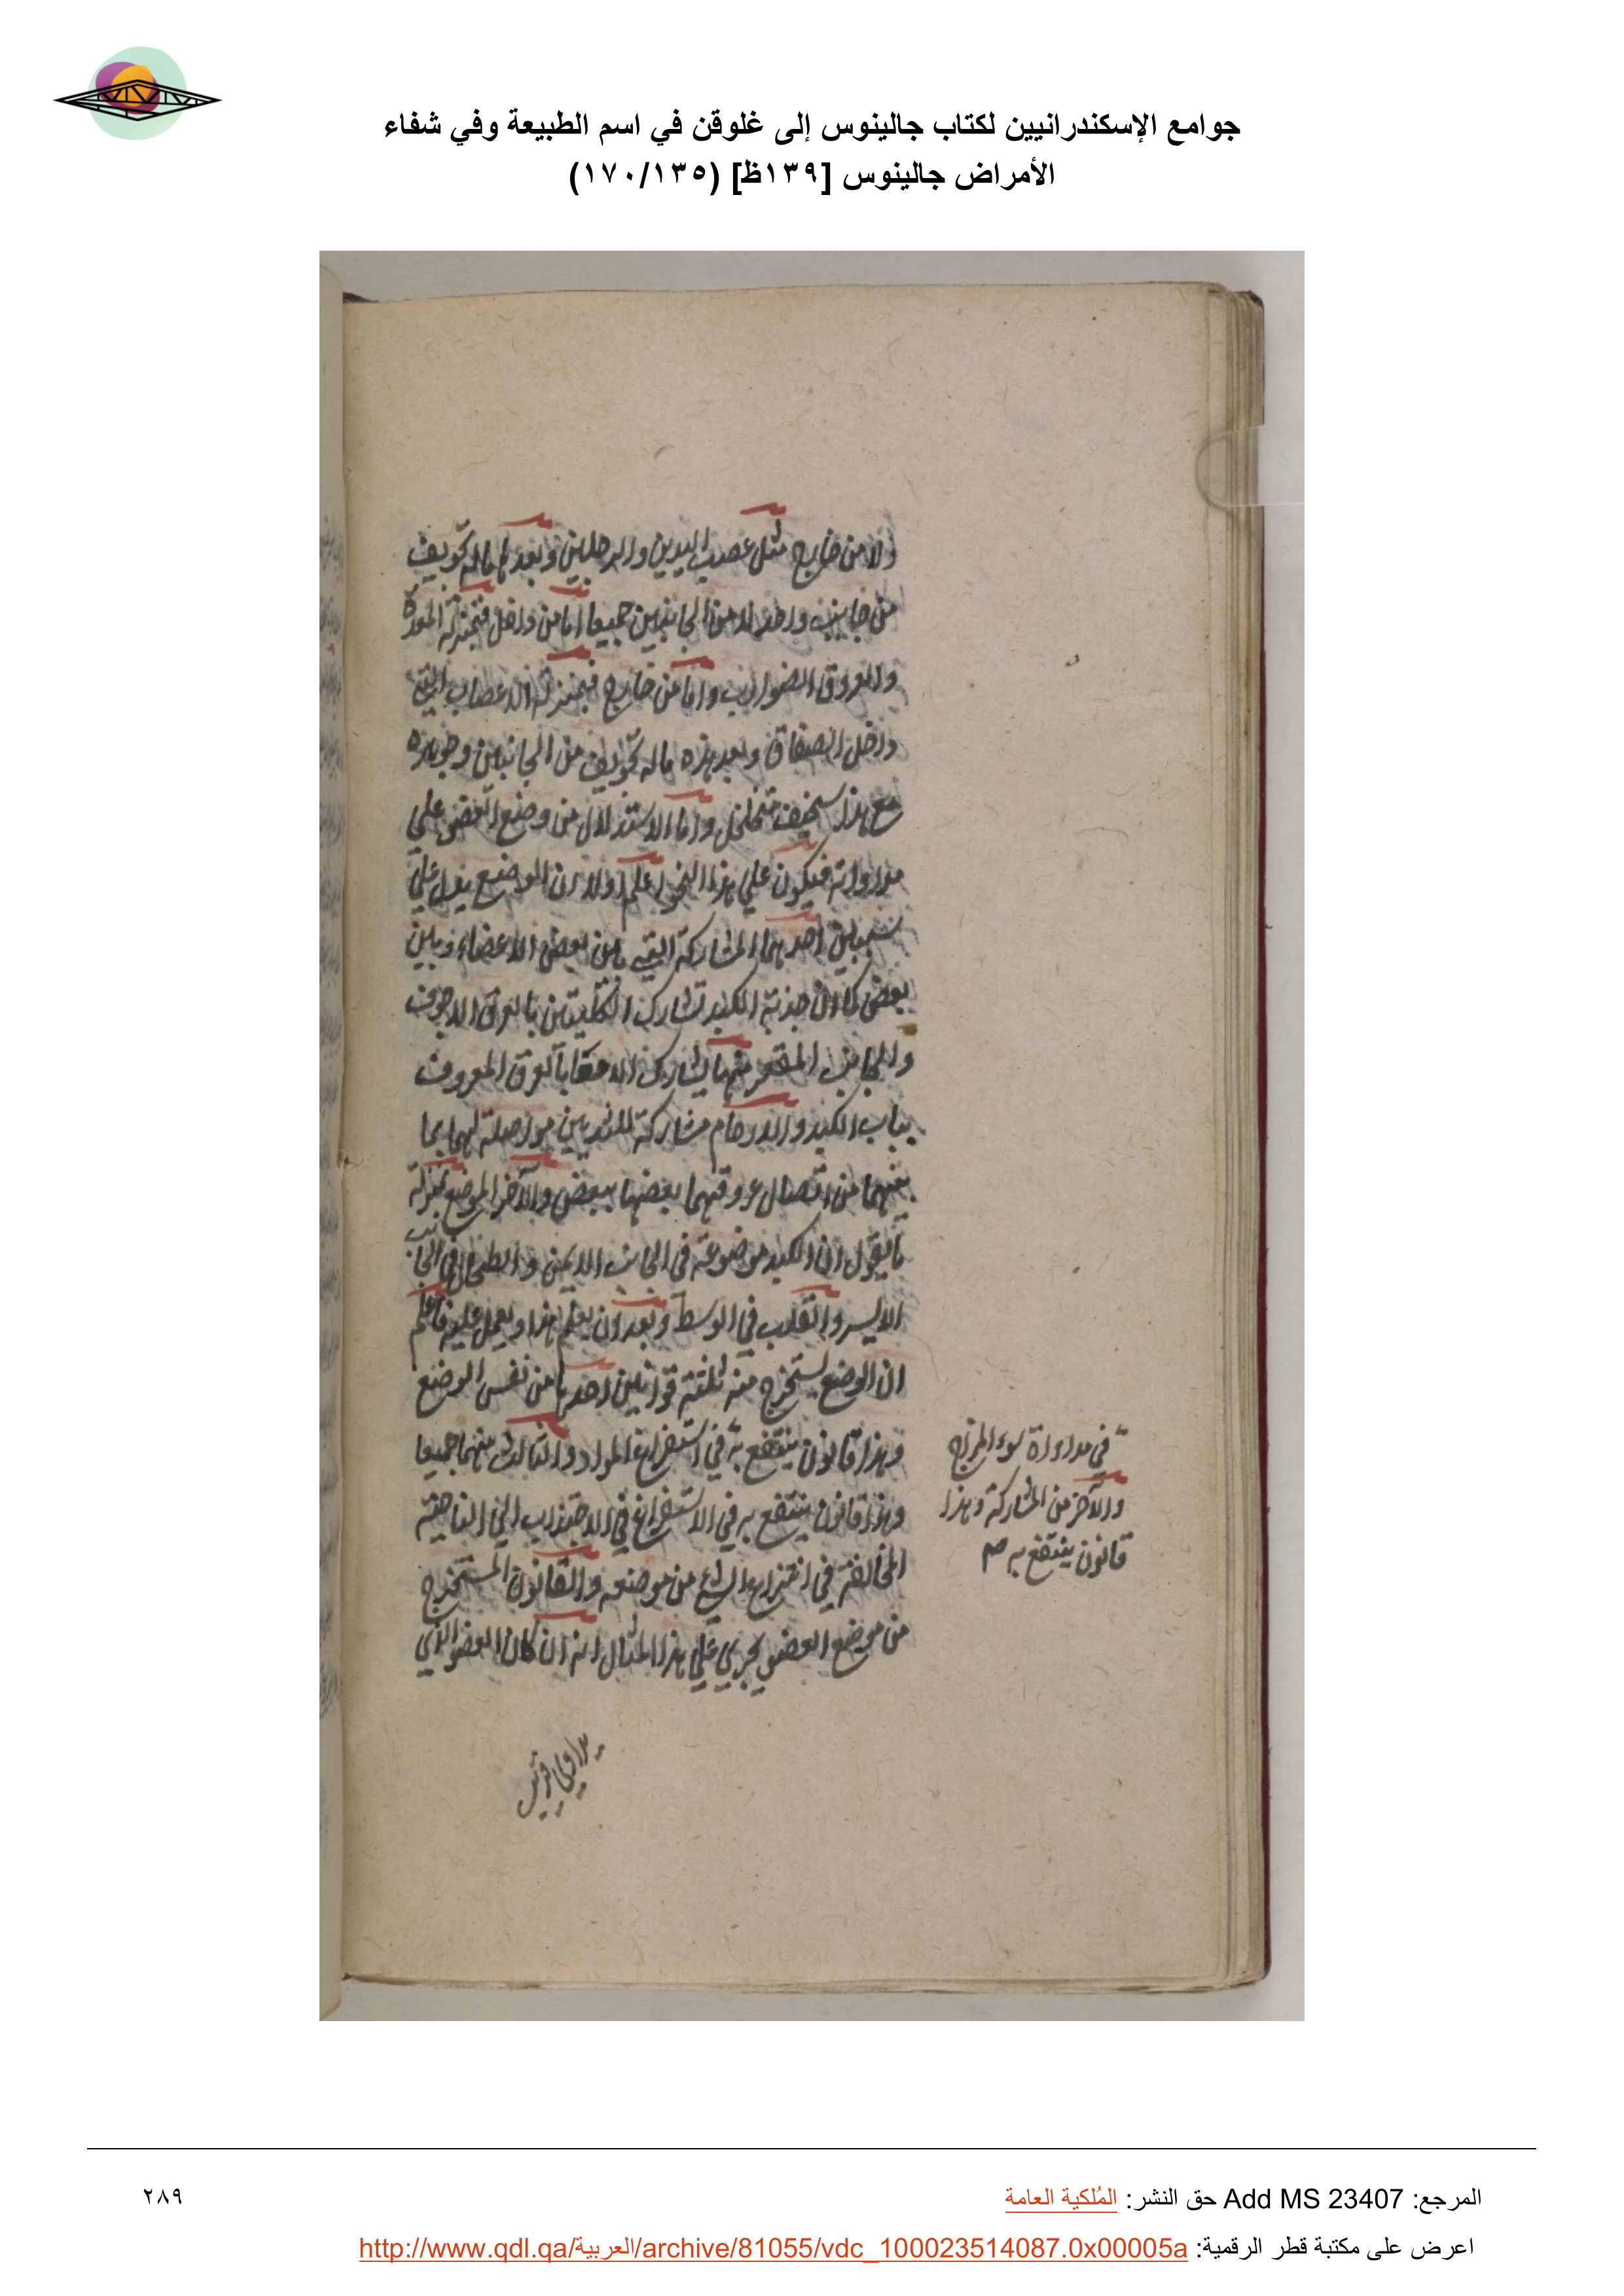 جوامع الإسكندرانيين لكتاب جالينوس إلى غلوقن في اسم الطبيعة وفي شفاء
الأمراض جالينوس [١٣٩ظ] (١٧٠/١٣٥)
ولا من خارج مثل عصب اليدين والرجلين وبعدها ماله تجويف
من جانب واحد لا من الجانبين جميعا اما من داخل فبمنزلة المعدة
والعروق الضوارب واما من خارج فبمنزلة الاعصاب التي
داخل الصفاق وبعد هذه ماله تجويف من الجانبين وجوهره
مع هذا سخيف متخلخل واما الاستدلال من وضع العضو علي
مداواته فيكون علي هذا النحو اعلم اولا ان الوضع يدل علي
شيئين احدهما المشاركة التي بين بعض الاعضاء وبين
بعض كما ان حدبة الكبد تشارك الكليتين بالعرق الاجوف
والجانب المقعر منها يشارك الامعا بالعرق المعروف
بباب الكبد والارحام مشاركة للثديين مواصلة لهما بما
بينهما من اتصال عروقهما بعضها ببعض والآخر الموضع بمنزلة
ما يقول ان الكبد موضوعة في الجانب الايمن والطحال في الجانب
الايسر والقلب في الوسط وبعد ان يعلم هذا ويعمل عليه فاعلم
ان الوضع يستخرج منه ثلثة قوانين احدها من نفس الوضع
وهذا قانون ينتفع به في استفراغ المواد والثالث منهما جميعا
وهذا قانون ينتفع به في الاستفراغ في الاجتذاب الي الناحية
المخالفة في انتزاع الشيء من موضعه والقانون المستخرج
من موضع العضو يجري علي هذا المثال انه ان كان العضو الذي
في مداواة سوء المزاج
والآخر من المشاركة وهذا
قانون ينتفع به صح
المرجع: Add MS 23407 حق النشر: المُلكية العامة
٢٨٩
اعرض على مكتبة قطر الرقمية: http://www.qdl.qa/العربية/archive/81055/vdc_100023514087.0x00005a